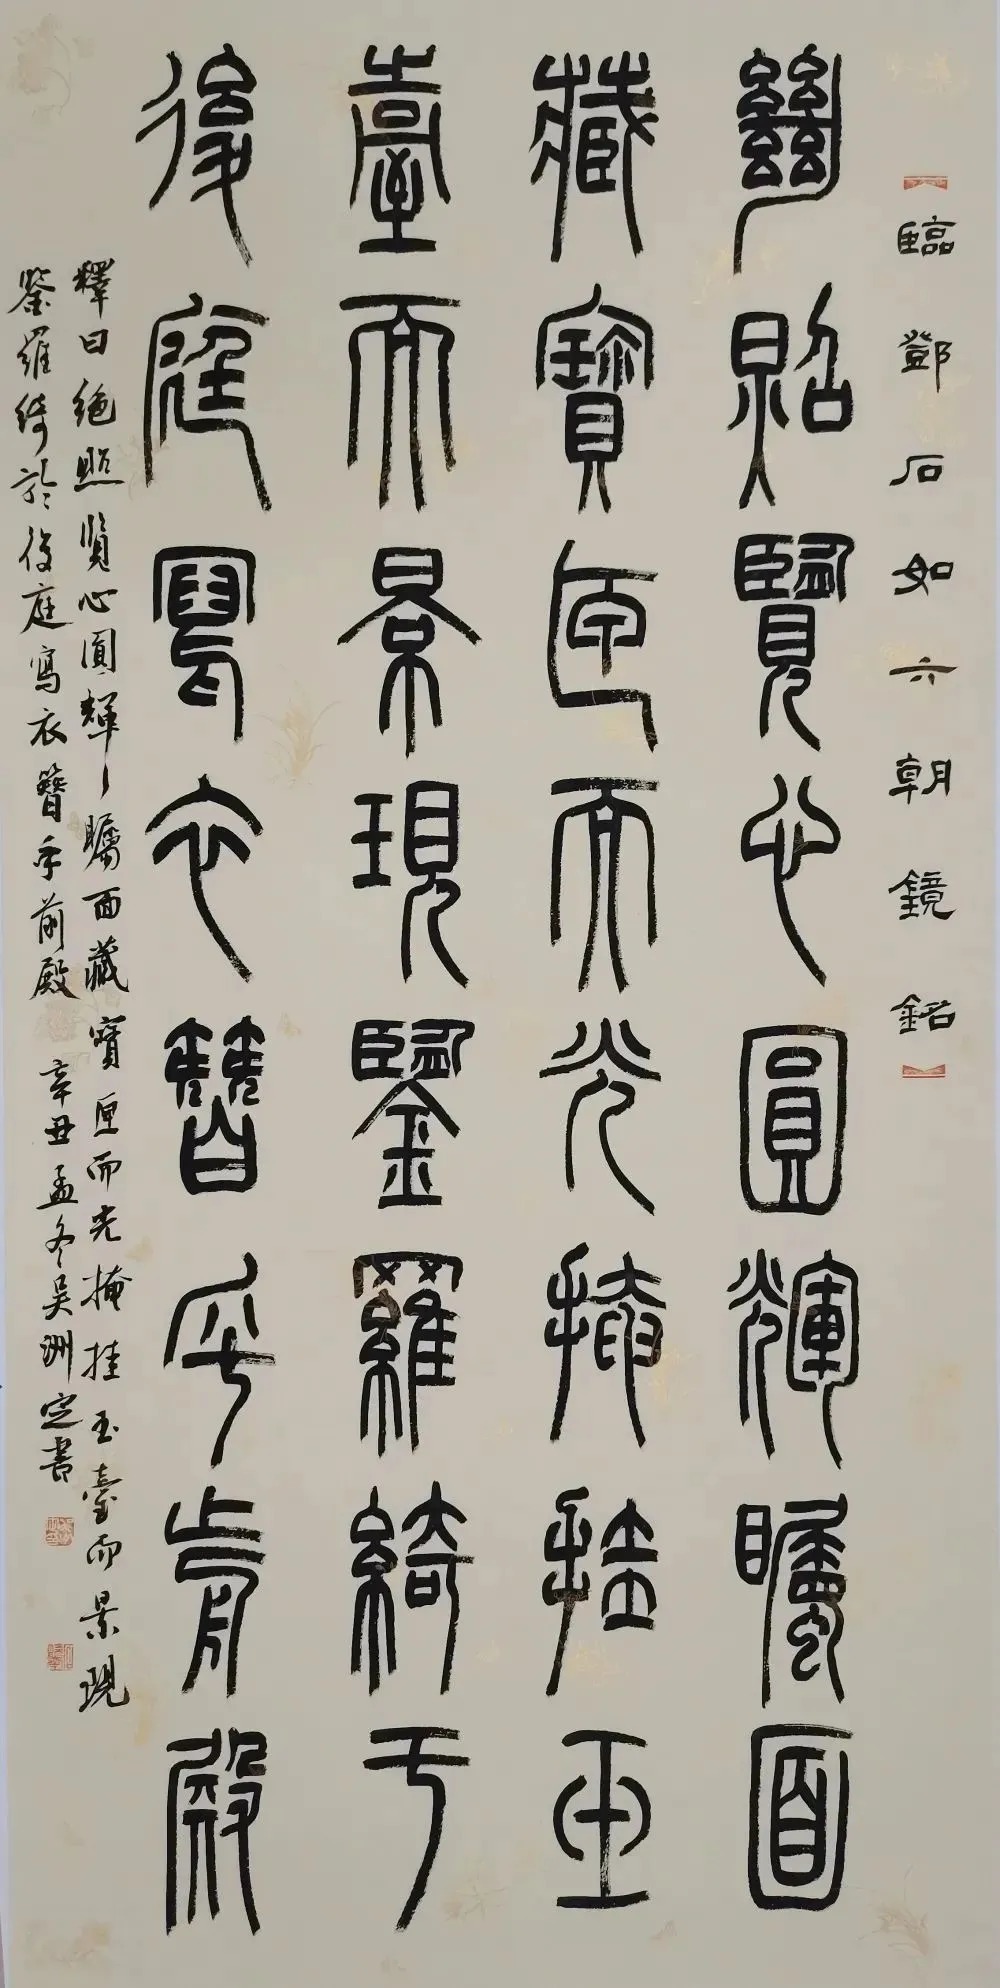 臨鄧石如六朝鏡銘
絕照覽心圓輝矚面
藏寶匣而光掩挂玉
臺而景現鑒羅綺于
後庭寫衣簪乎前殿
釋曰絶照覽心圓輝矚面藏寶匣而光掩挂玉臺而景現
鑒羅綺於後庭寫衣簪乎前殿 辛丑孟冬吴洲定書